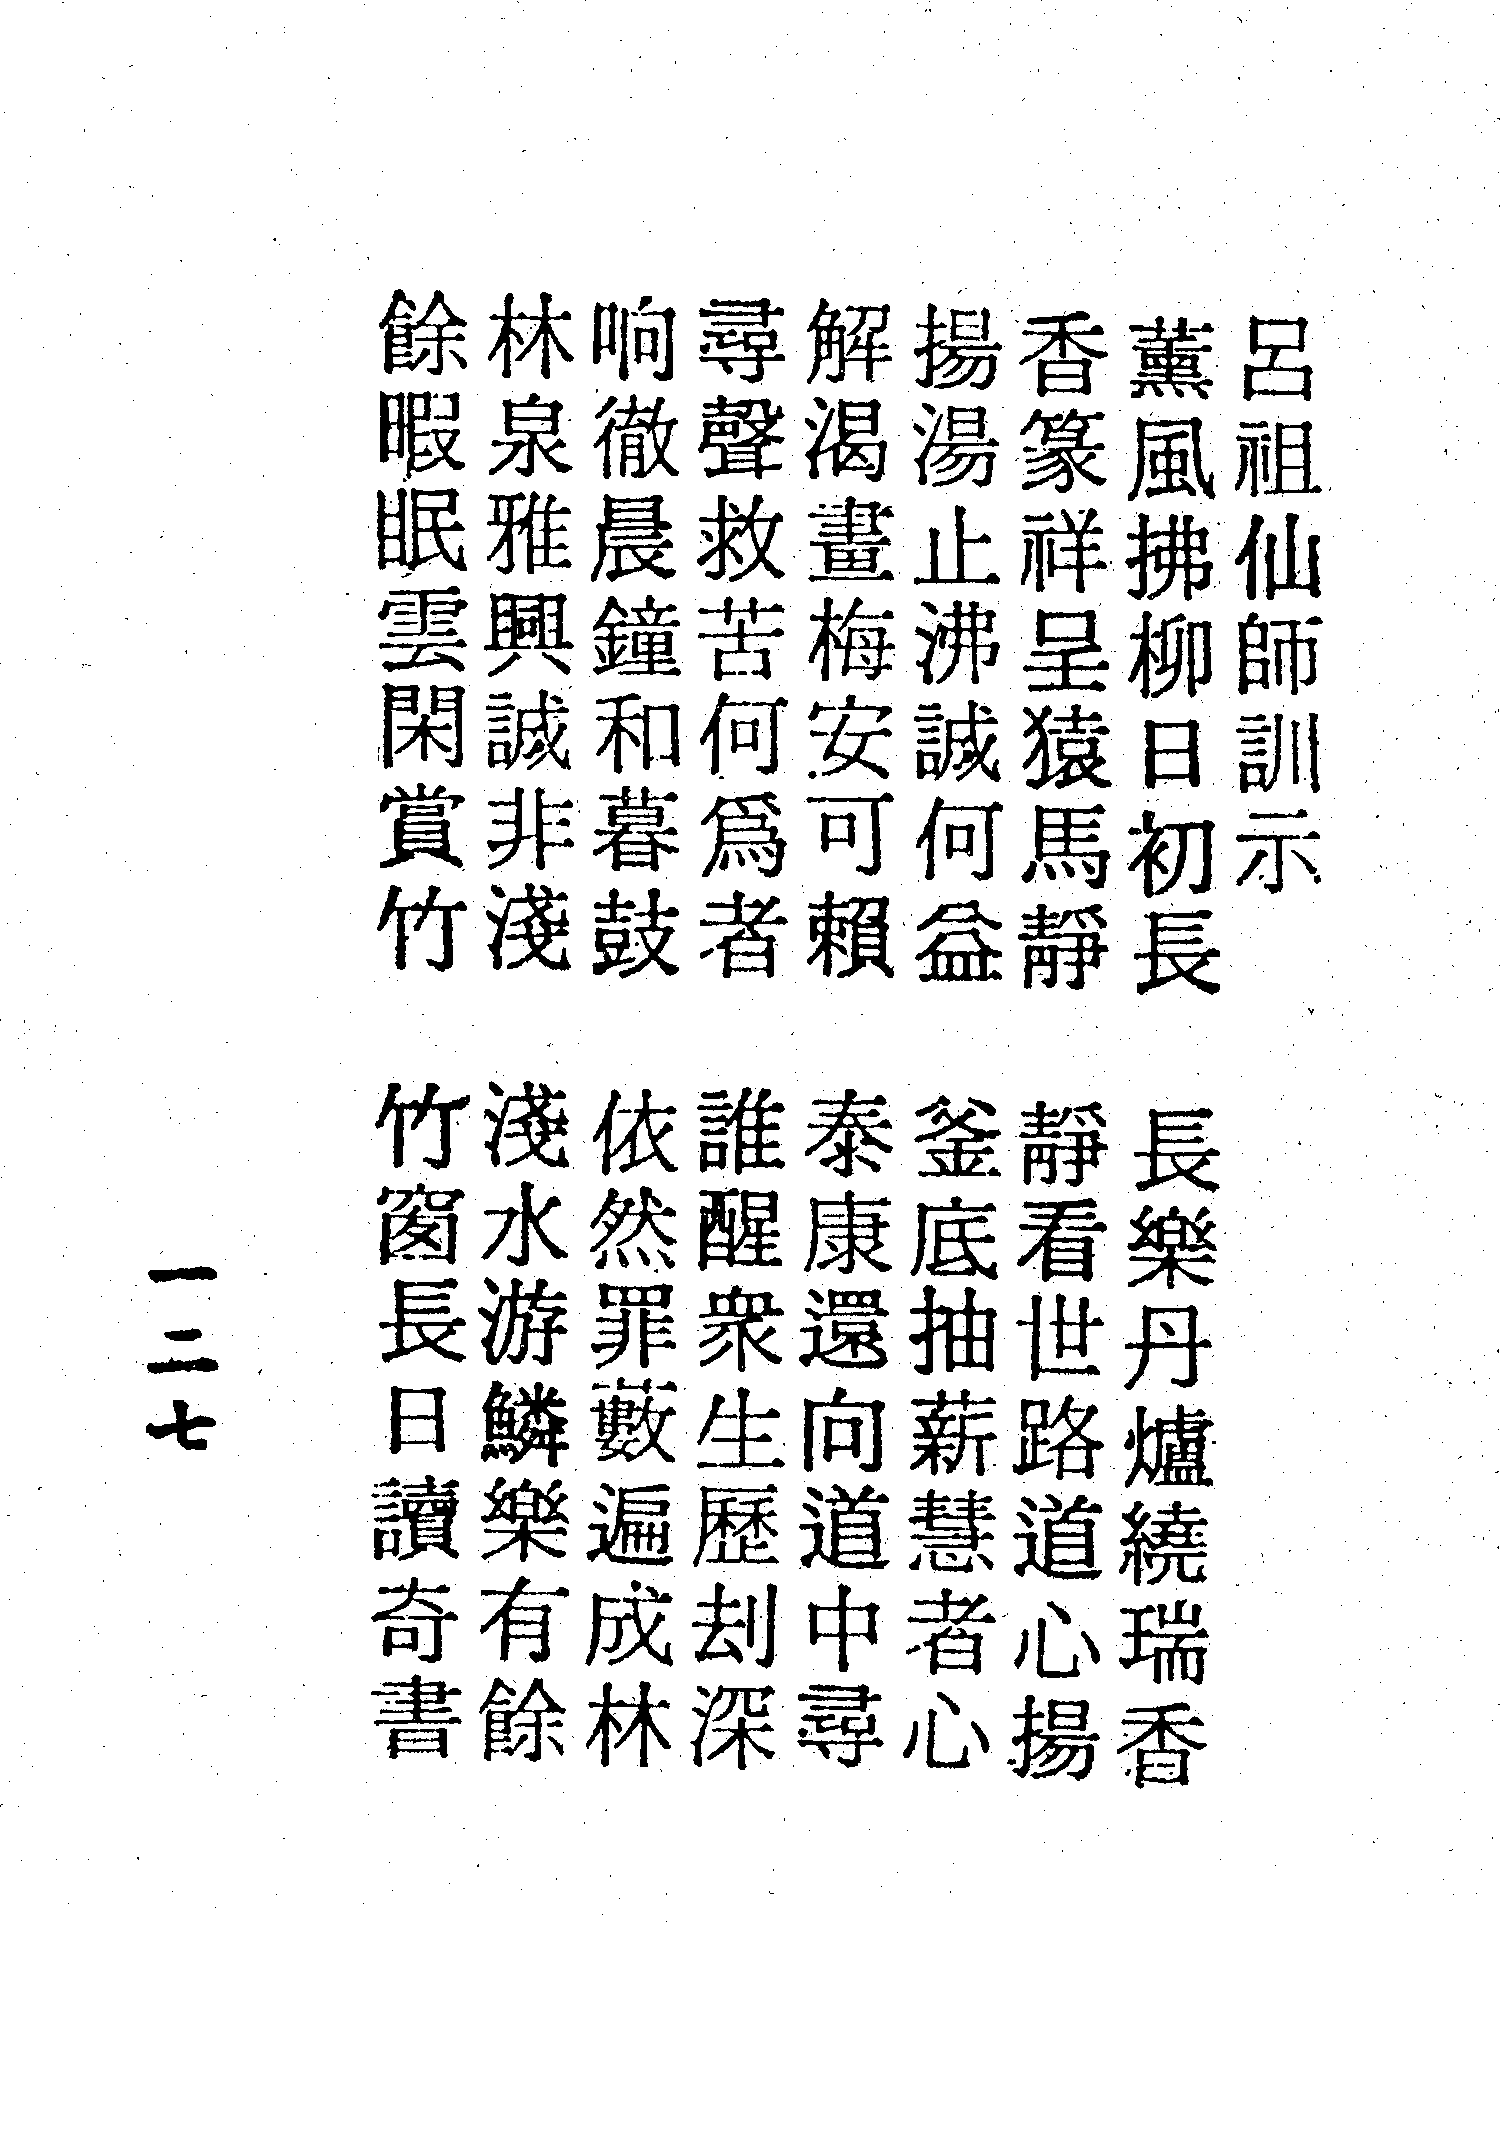 呂祖仙師訓示
薰風拂柳日初長　長樂丹爐繞瑞香
香篆祥呈猿馬靜　靜看世路道心揚
揚湯止沸誠何益　釜底抽薪慧者心
解渴畫梅安可賴　泰康還向道中尋
尋聲救苦何爲者　誰醒衆生歷刦深
响徹晨鐘和暮鼓　依然罪藪遍成林
林泉雅興誠非淺　淺水游鱗樂有餘
餘暇眠雲閑賞竹　竹窗長日讀奇書
一二七